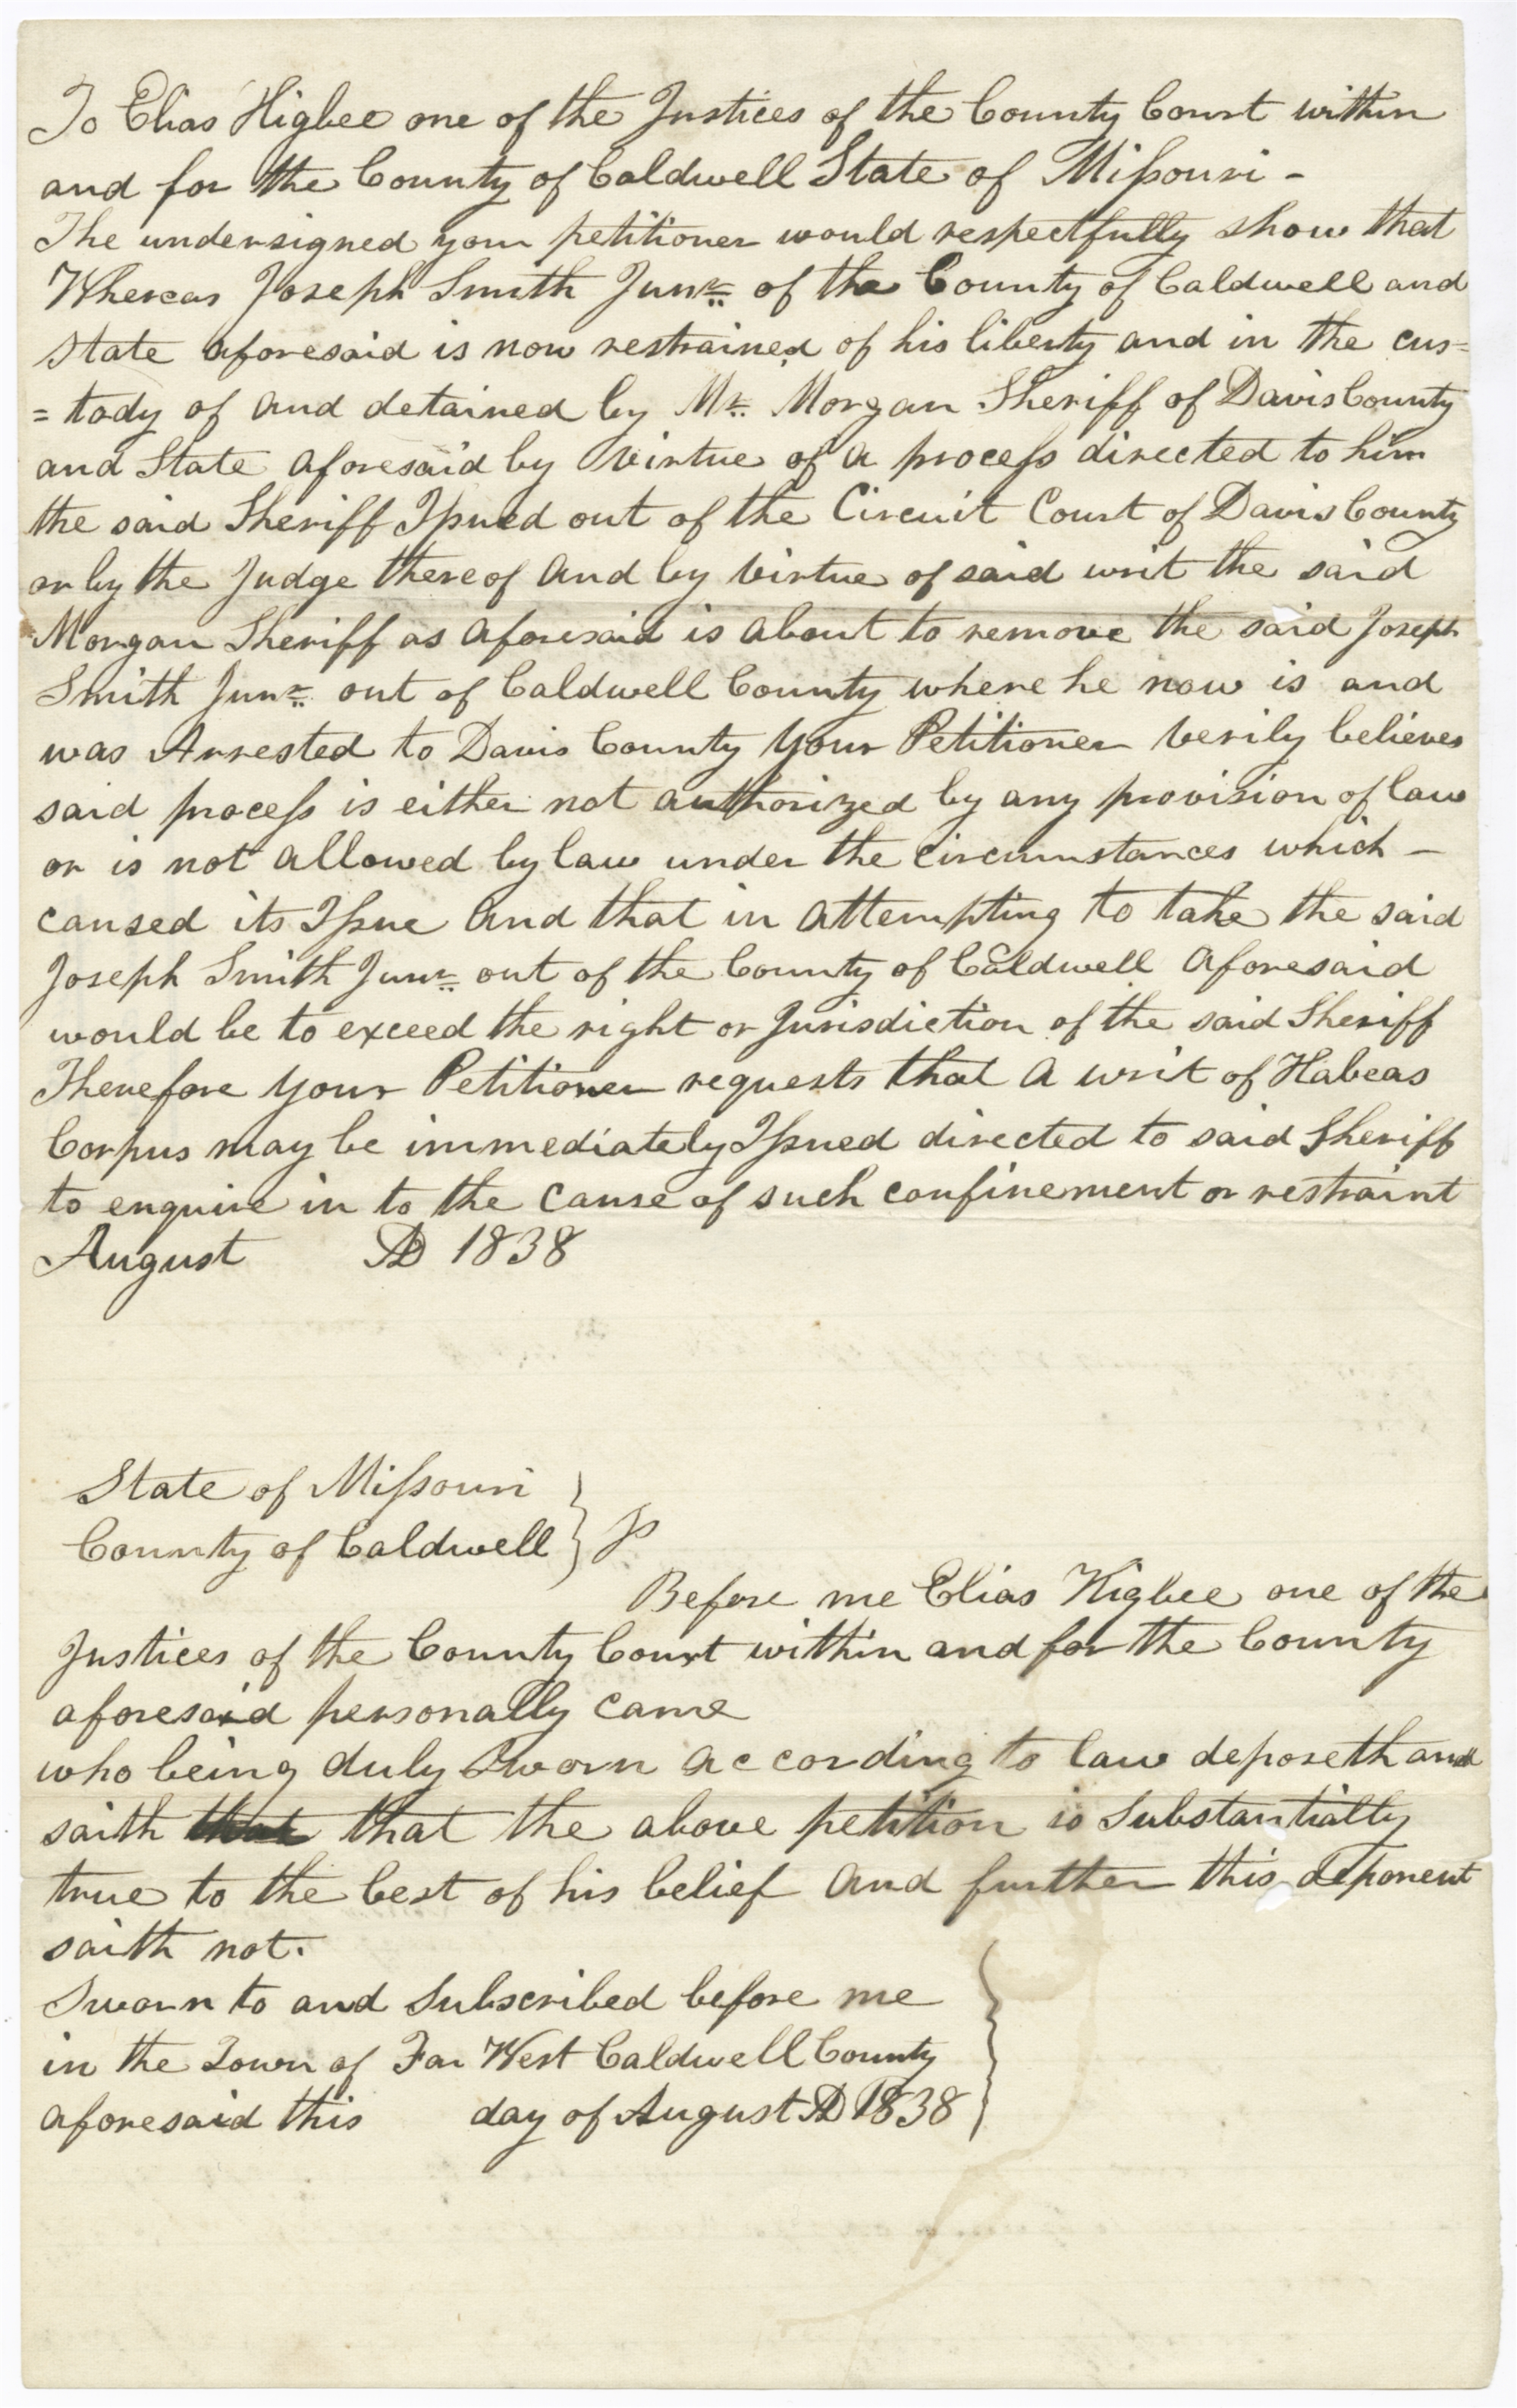 To Elias Higbee one of the Justices of the County Court within
and for the County of Caldwell State of Missouri -
The undersigned your petitioner would respectfully show that
Whereas Joseph Smith Junr. of the County of Caldwell and
state aforesaid is now restrained of his liberty and in the cus=
=tody of and detained by Mr. Morgan Sheriff of Davis County
and State aforesaid by Virtue of a process directed to him
the said Sheriff Issued out of the Circuit Court of Davis County
or by the Judge thereof and by Virtue of said writ the said
Morgan Sheriff as aforesaid is about to remove the said Joseph
Smith Junr. out of Caldwell County where he now is and
was Arrested to Davis County your Petitioner Verily believes
said process is either not authorized by any provision of law
or is not allowed by law under the circumstances which -
caused its Issue and that in attempting to take the said
Joseph Smith Junr. out of the County of Caldwell aforesaid
would be to exceed the right or Jurisdiction of the said Sheriff
Therefore your Petitioner requests that a writ of Habeas
Corpus may be immediately Issued directed to said Sheriff
to enquire in to the cause of such confinement or restraint
August AD 1838
State of Missouri }
County of Caldwell } ss
Before me Elias Higbee one of the
Justices of the County Court within and for the County
aforesaid personally came
who being duly Sworn according to law deposeth and
saith that that the above petition is Substantially
true to the best of his belief and further this deponent
saith not.
Sworn to and Subscribed before me }
in the Town of Far West Caldwell County
aforesaid this day of August AD 1838